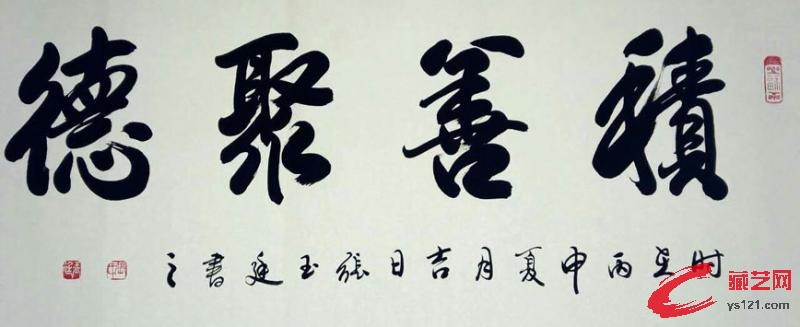 積善聚德
时在丙申夏月吉日張玉廷書之
藏艺网
ys121.com